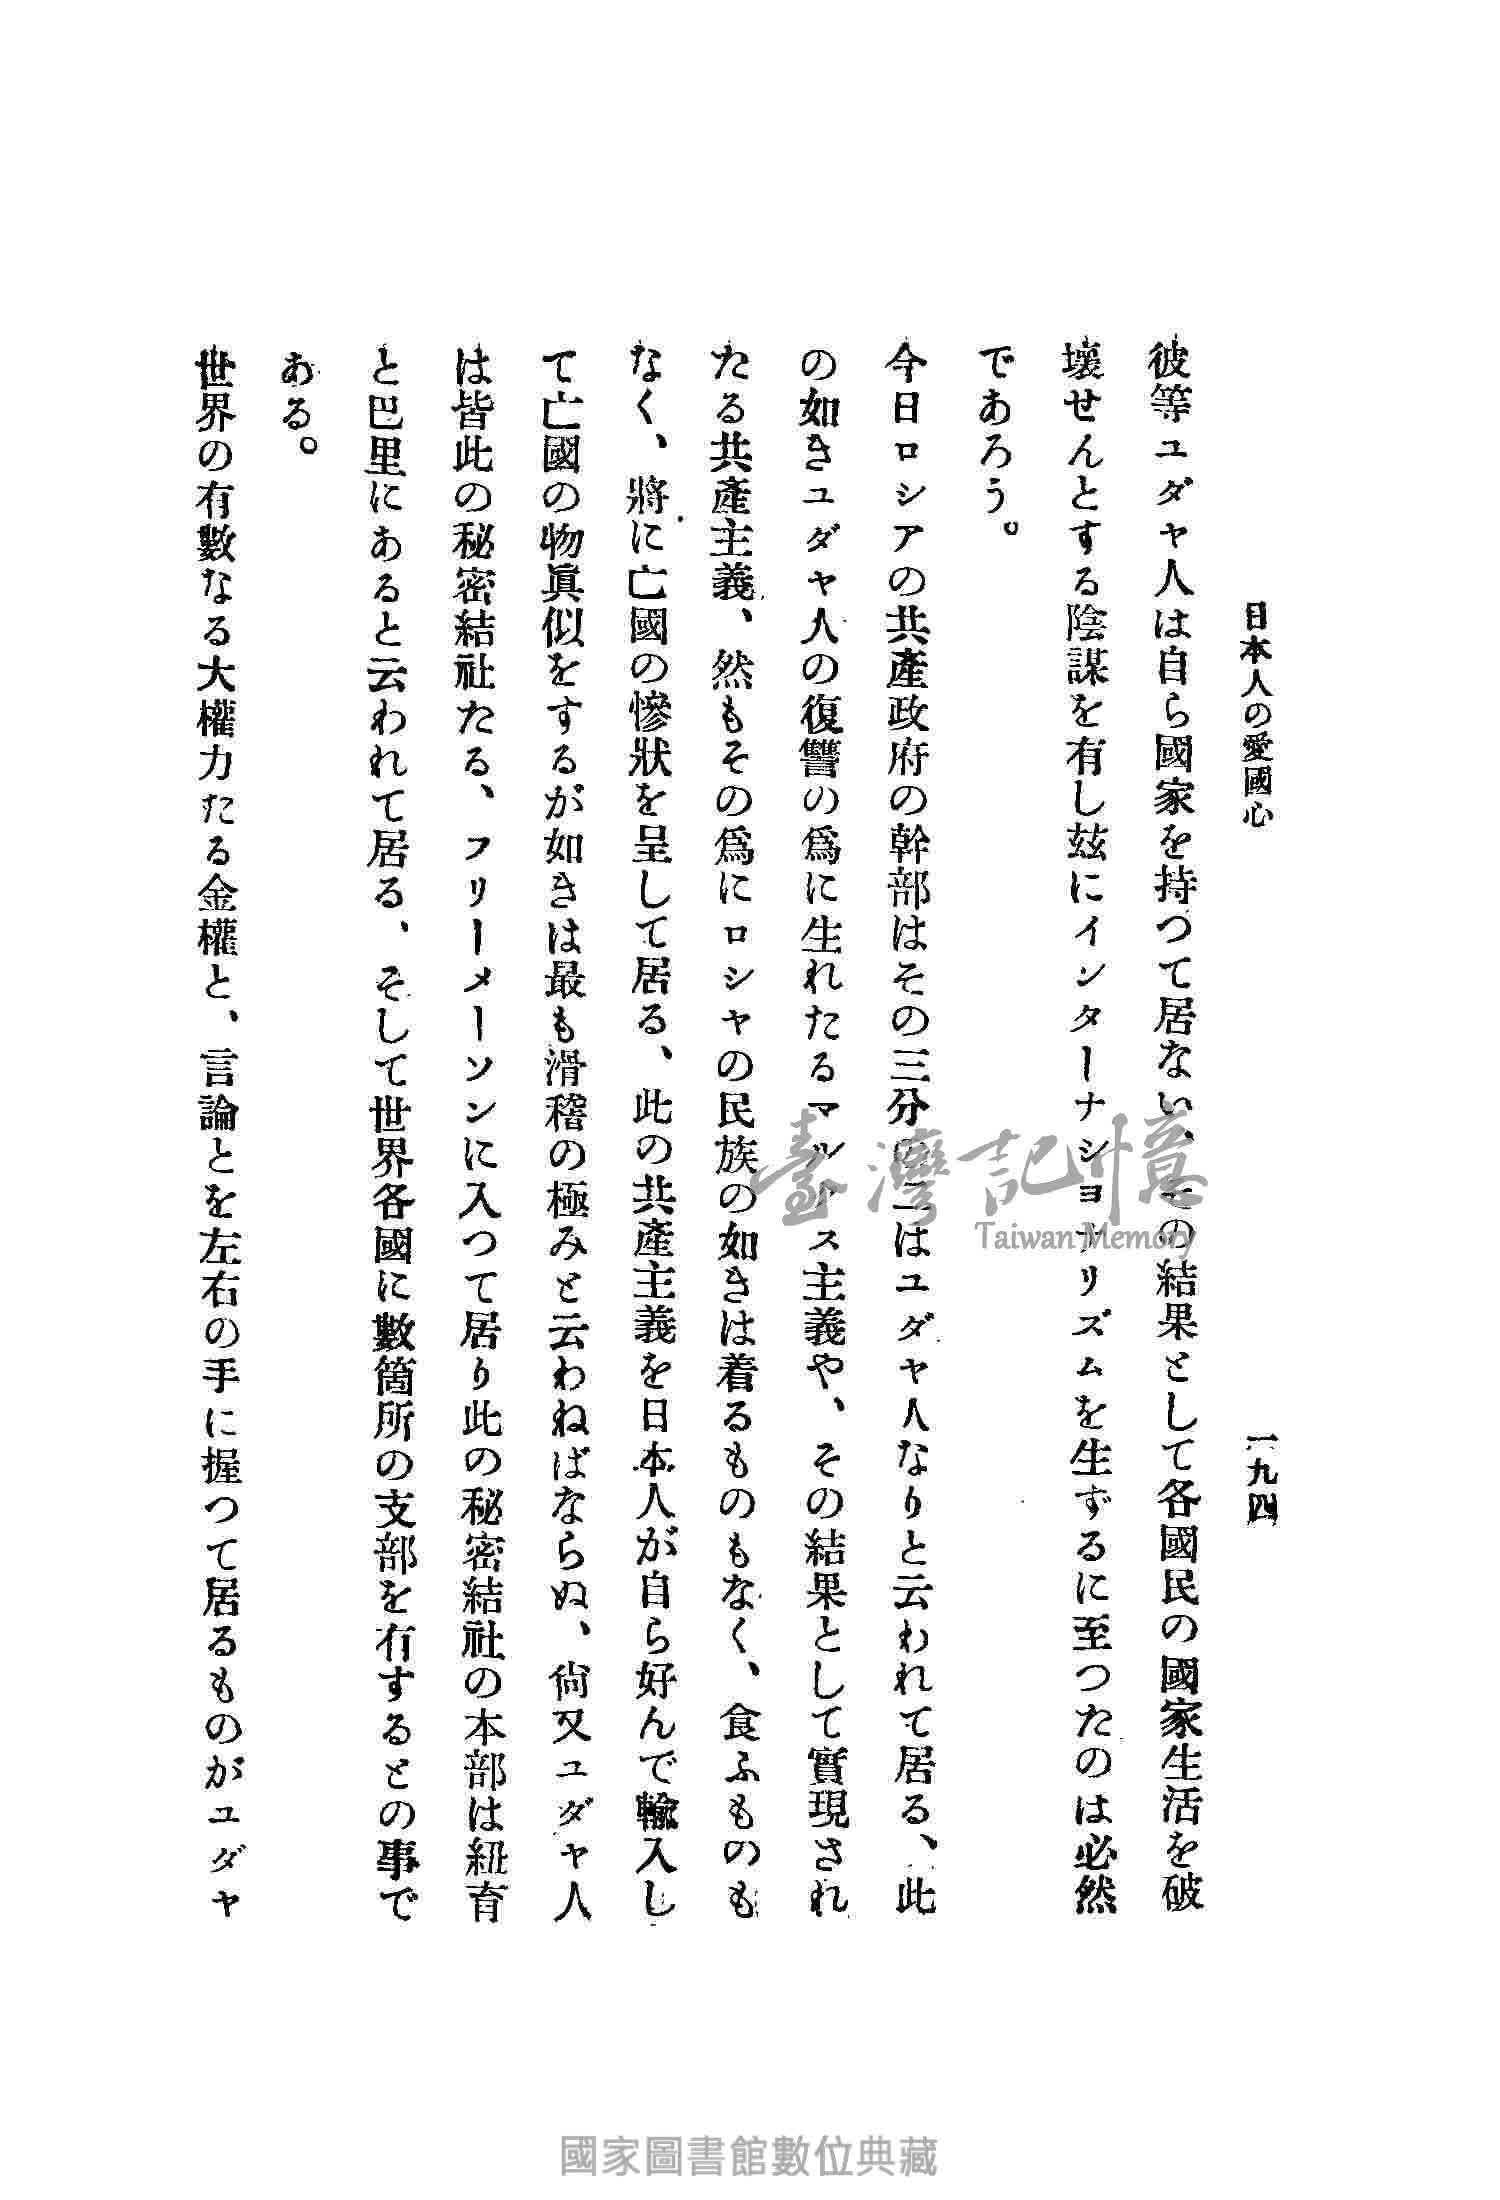 日本人の愛國心
一九四
彼等ユダヤ人は自ら國家を持つて居ない、その結果として各國民の國家生活を破
壞せんとする陰謀を有し玆にインターナショナリズムを生ずるに至つたのは必然
であろう。
今日ロシアの共產政府の幹部はその三分の二はユダヤ人なりと云われて居る、此
の如きユダヤ人の復讐の爲に生れたるマルクス主義や、その結果として實現され
たる共產主義、然もその爲にロシヤの民族の如きは着るものもなく、食ふものも
なく、將に亡國の慘狀を呈して居る、此の共產主義を日本人が自ら好んで輸入し
て亡國の物眞似をするが如きは最も滑稽の極みと云わねばならぬ、尙又ユダヤ人
は皆此の秘密結社たる、フリーメーソンに入つて居り此の秘密結社の本部は紐育
と巴里にあると云われて居る、そして世界各國に數箇所の支部を有するとの事で
ある。
世界の有數なる大權力たる金權と、言論とを左右の手に握つて居るものがユダヤ
臺灣記憶
Taiwan Memory
國家圖書館數位典藏